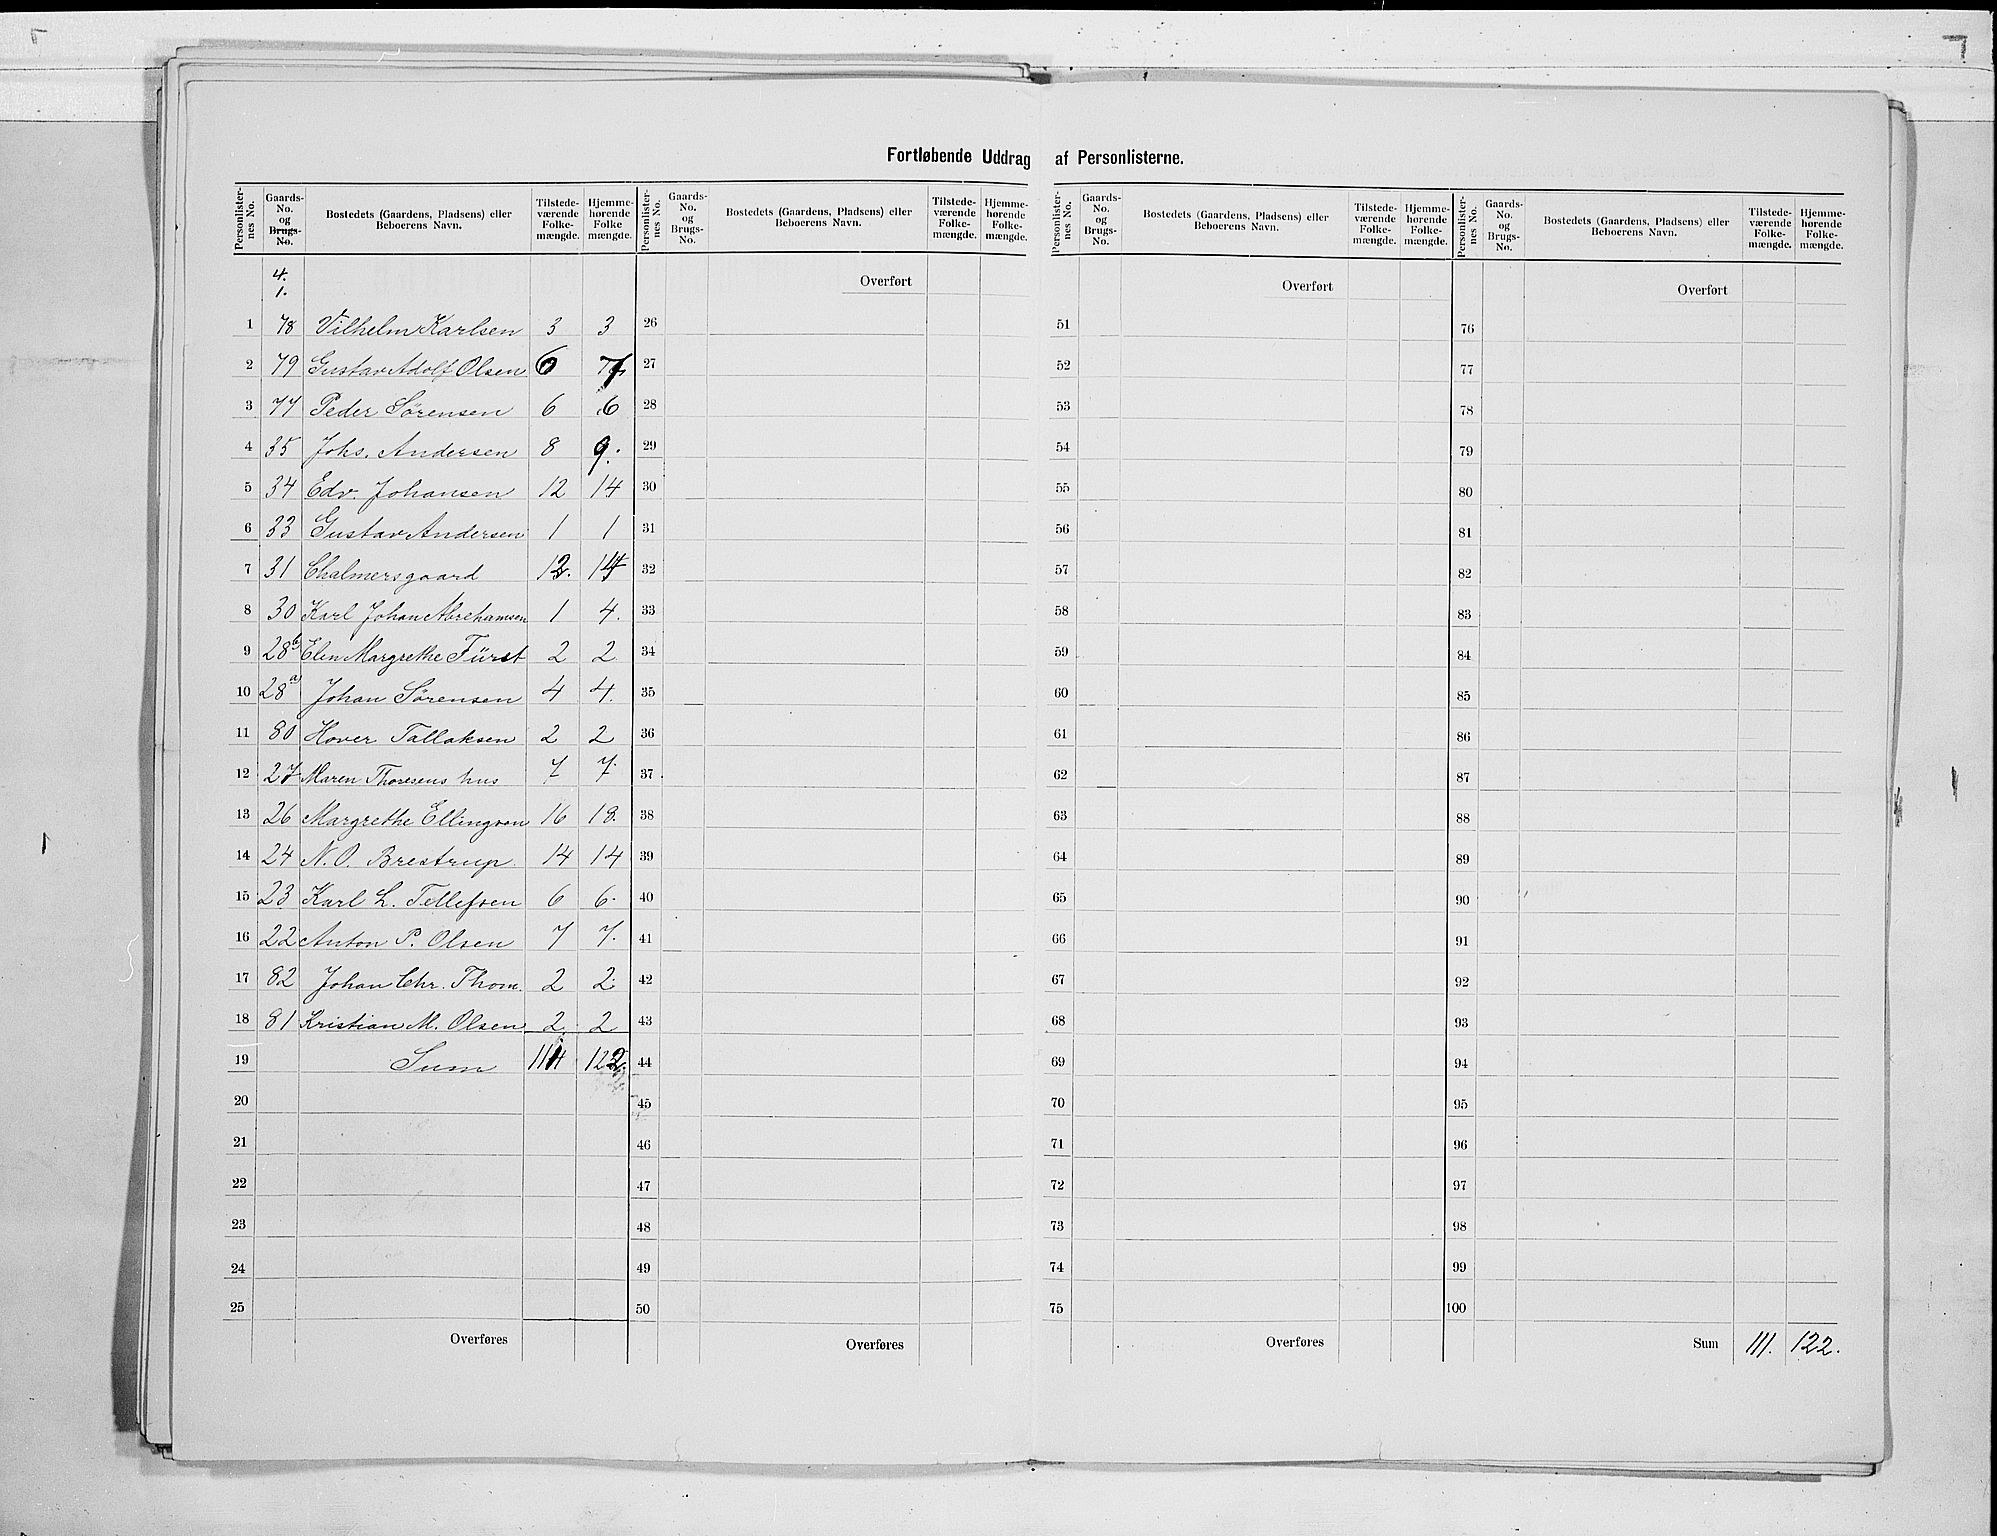 Fortløbende Uddrag af Personlisterne.
Personlister-nes No. Gaards-No. og Brugs-No. Bostedets (Gaardens, Pladsens) eller Beboerens Navn. Tilstede-værende Folke-mængde. Hjemme-hørende Folke mængde.
4.
1.
1 78 Vilhelm Karlsen 3 3
2 79 Gustav Adolf Olsen 6 7
3 77 Peder Sørensen 6 6
4 35 Johs. Andersen 8 9.
5 34 Edv. Johansen 12 14
6 33 Gustav Andersen 1 1
7 31 Chalmersgaard 12. 14
8 30 Karl Johan Abrehamsen 1 4.
9 28b Elen Margrethe Fürst 2 2
10 28a Johan Sørensen 4 4.
11 80 Hover Tallaksen 2 2
12 27 Maren Thoresens hus 7 7.
13 26 Margrethe Ellingsen 16 18.
14 24 N. O. Brestrup 14 14
15 23 Karl L. Tellefsen 6 6.
16 22 Anton P. Olsen 7 7.
17 82 Johan Chr. Thom. 2 2
18 81 Kristian M. Olsen 2 2
19 Sum 111 122.
20
21
22
23
24
25
Overføres
Personlister-nes No. Gaards-No. og Brugs-No. Bostedets (Gaardens, Pladsens) eller Beboerens Navn. Tilstede-værende Folke-mængde. Hjemme-hørende Folke-mængde.
Overført
26
27
28
29
30
31
32
33
34
35
36
37
38
39
40
41
42
43
44
45
46
47
48
49
50
Overføres
Personlister-nes No. Gaards-No. og Brugs-No. Bostedets (Gaardens, Pladsens) eller Beboerens Navn. Tilstede-værende Folke-mængde. Hjemme-hørende Folke-mængde.
Overført
51
52
53
54
55
56
57
58
59
60
61
62
63
64
65
66
67
68
69
70
71
72
73
74
75
Overføres
Personlister-nes No. Gaards-No. og Brugs-No. Bostedets (Gaardens, Pladsens) eller Beboerens Navn. Tilstede-værende Folke-mængde. Hjemme-hørende Folke-mængde.
Overført
76
77
78
79
80
81
82
83
84
85
86
87
88
89
90
91
92
93
94
95
96
97
98
99
100
Sum 111. 122.